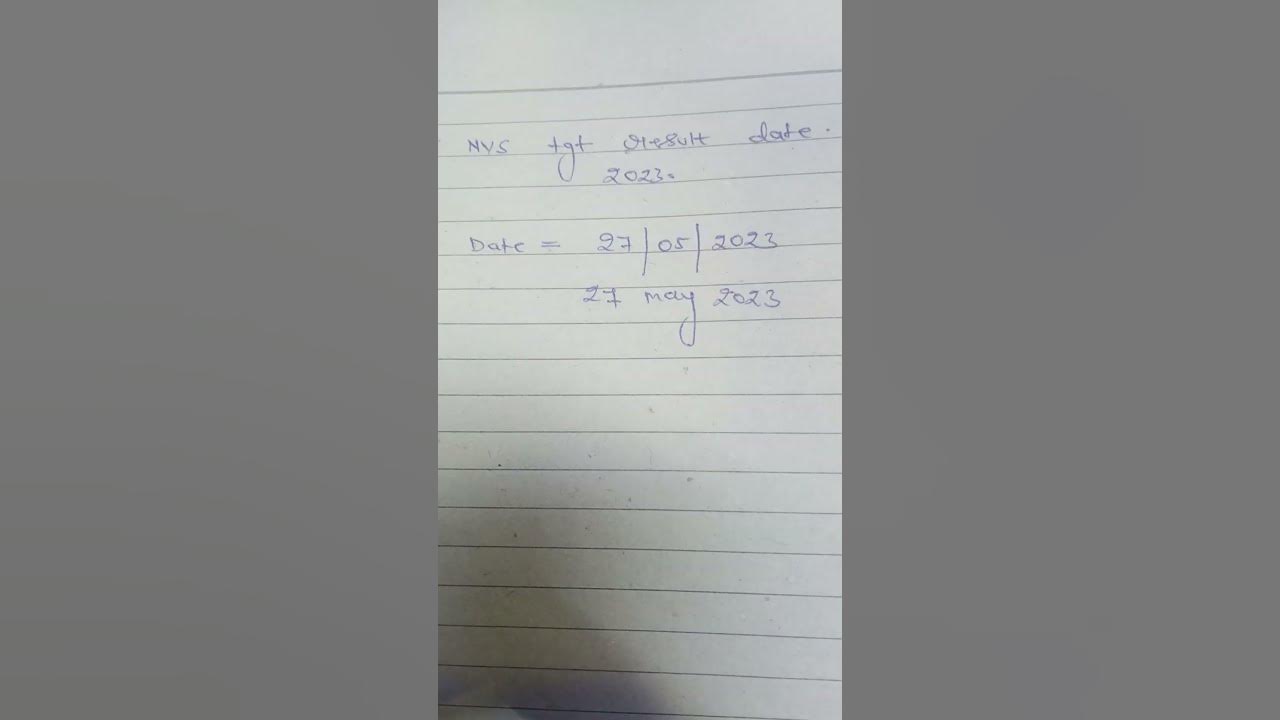 NVS tgt result date.
2023.
Date = 27/05/2023
27 may 2023